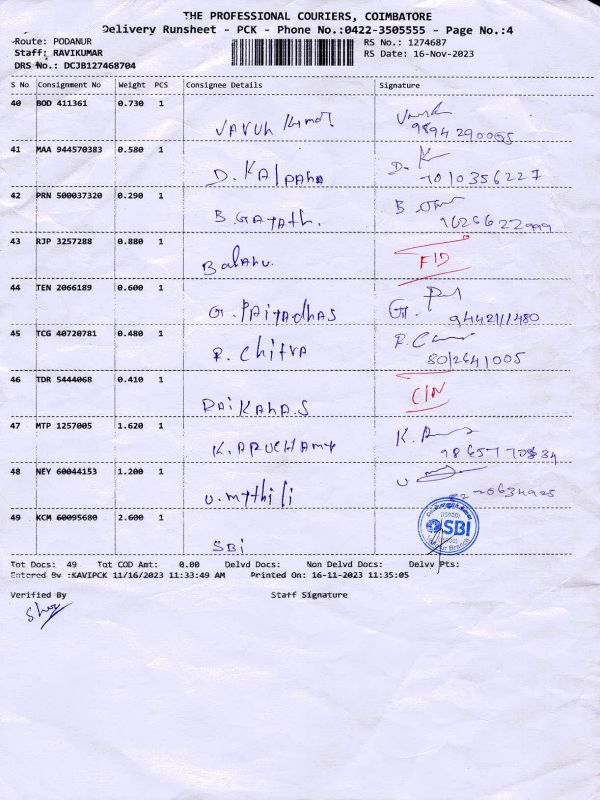 THE PROFESSIONAL COURIERS, COIMBATORE
Delivery Runsheet - PCK - Phone No.:0422-3505555 - Page No.:4
Route: PODANUR
RS No.: 1274687
Staff: RAVIKUMAR
RS Date: 16-Nov-2023
DRS No.: DCJB127468704
S No Consignment No Weight PCS Consignee Details Signature
40 BOD 411361 0.730 1 VARUN Kumar
9894290005
41 MAA 944570383 0.580 1 D. KAlpana D. K
7010356227
42 PRN 500037320 0.290 1 B. GAyAth. B
43 RJP 3257288 0.880 1 BalAnu. FID
44 TEN 2066189 0.600 1 G. PRiyADhAS G.
45 TCG 40720781 0.480 1 R. chitRA R.
8012641005
46 TDR 5444068 0.410 1 C/N
47 MTP 1257005 1.620 1 K. ARUCHAmy K.
48 NEY 60044153 1.200 1 U. mythili U
49 KCM 60095680 2.600 1 SBi SBI
Tot Docs: 49 Tot COD Amt: 0.00 Delvd Docs: Non Delvd Docs: Delvy Pts:
Entered By :KAVIPCK 11/16/2023 11:33:49 AM Printed On: 16-11-2023 11:35:05
Verified By Staff Signature